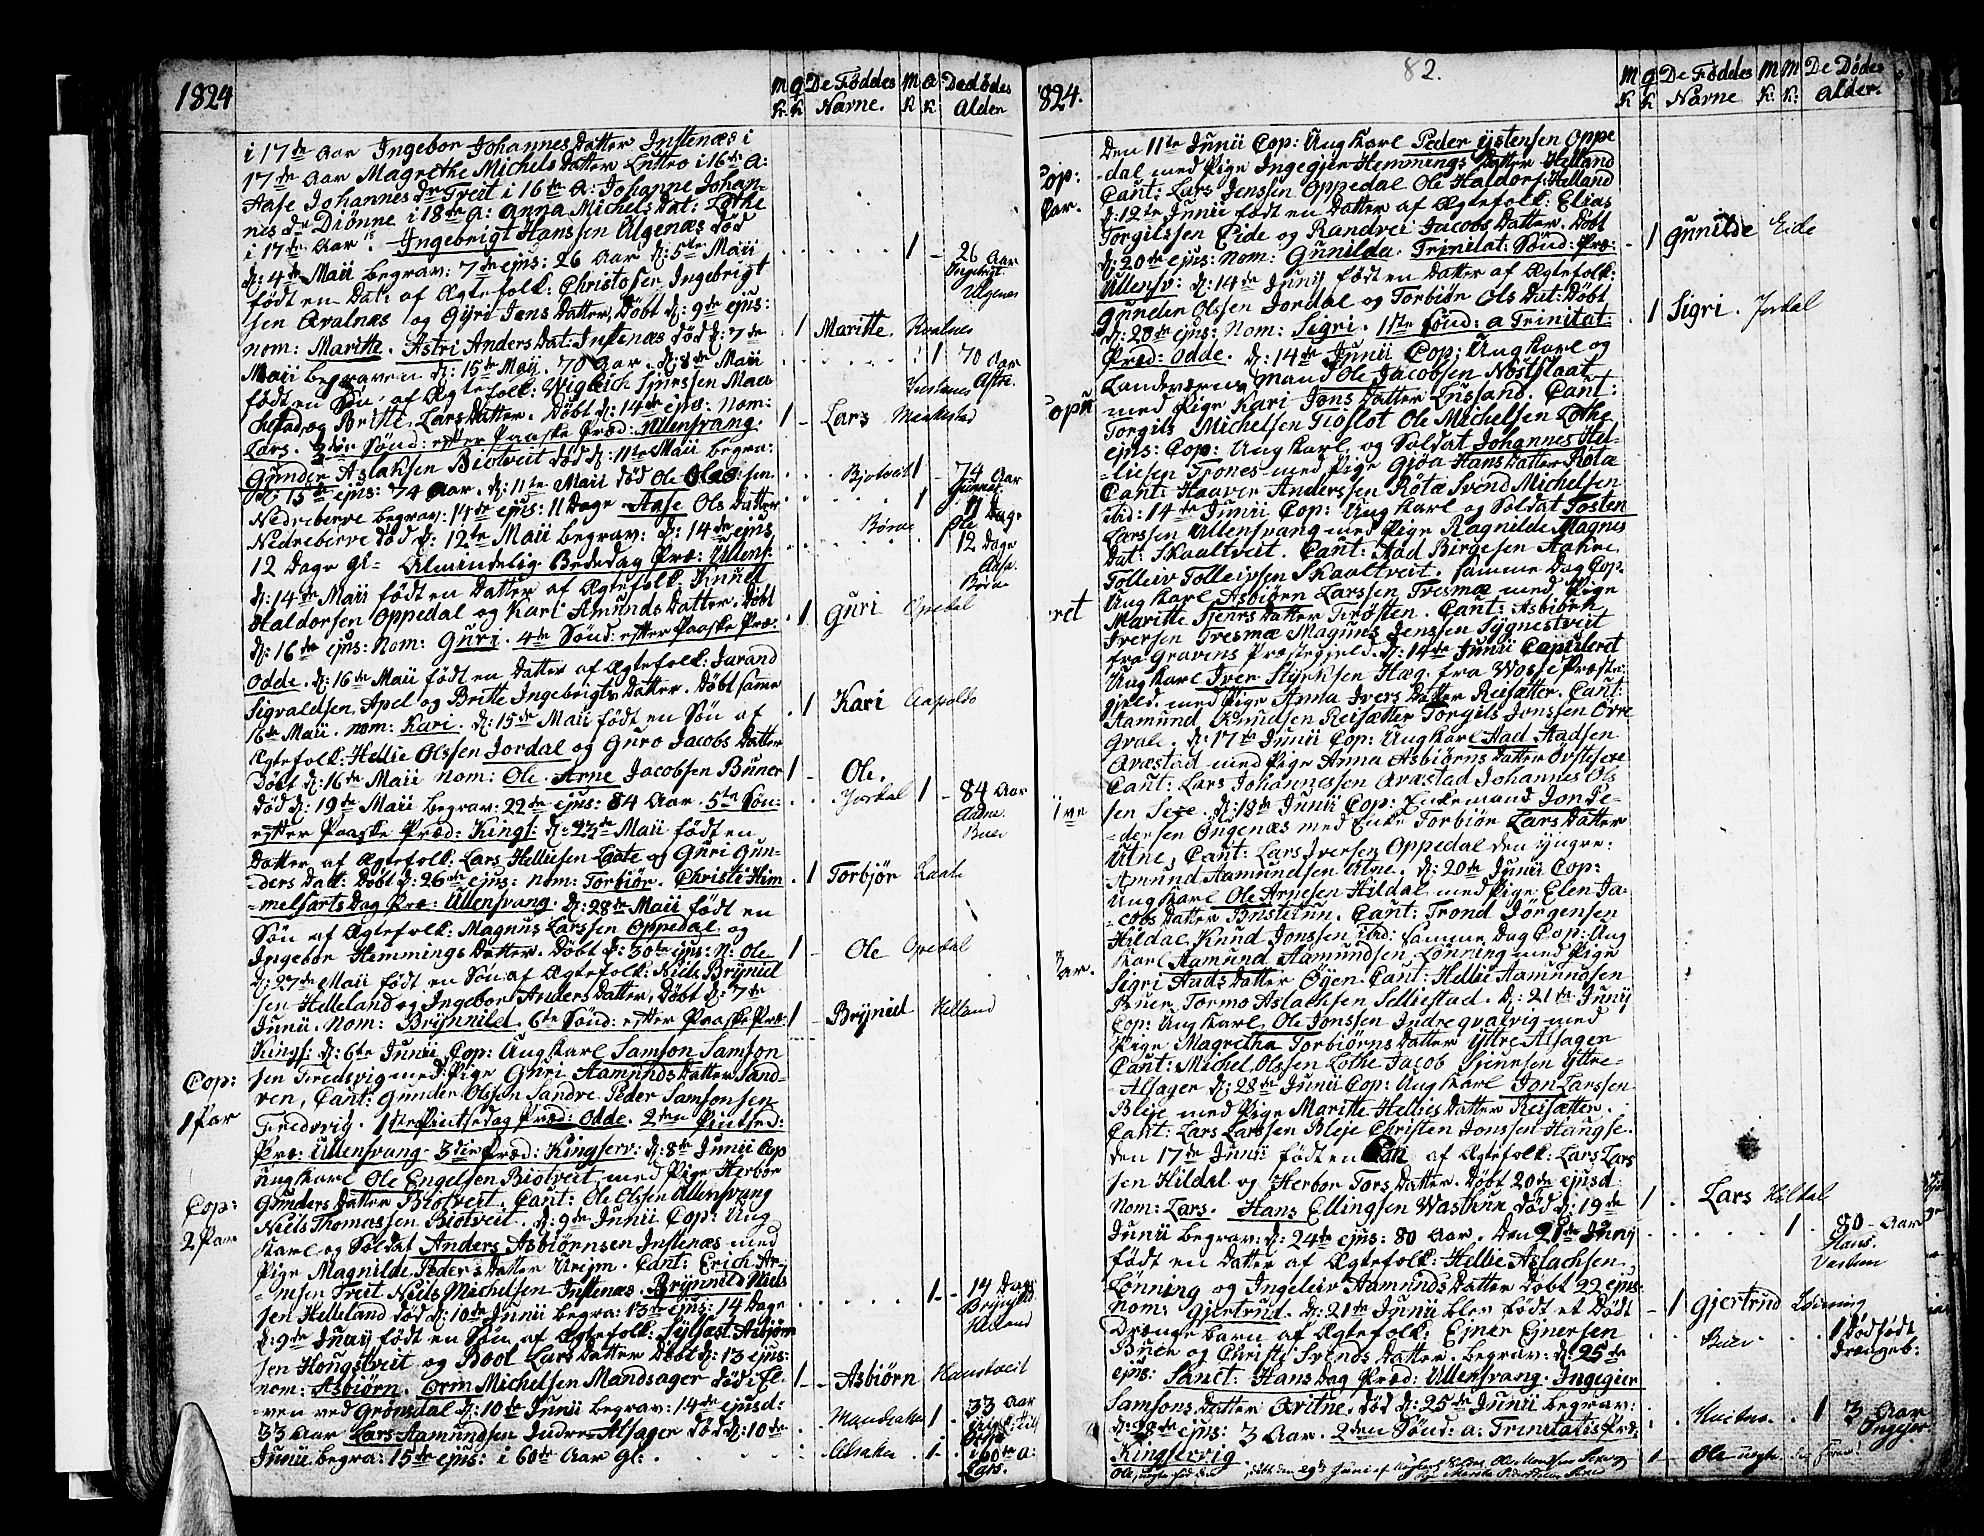 1824
M K. Q K De Føddes Navne. M K Q K. De Dødes Alder
i 17de Aar Ingebor Johannes Datter Instenæs i
17de Aar Magrethe Michels Datter Luttro i 16de A:
Aase Johannes dr Treit i 16de A: Johanne Johan-
nis dr Diønne i 18de A: Anna Michels Dat: Lothe
i 17de Aar. Ingebrigt Hanssen Ulgenæs død
d: 4de Maii begrav: 7de ejus: 26 Aar d: 5te Maii
født en Dat: af Ægtefolk: Christofer Ingebrigt
sen Qvalnæs og Gyri Jens Datter, Døbt d: 9de ejus:
nom: Maritte. Astri Anders Dat: Instenæs død d: 7de
Maii begraven d: 15de Maij. 70 Aar. d: 8de Maii
født en Søn af Ægtefolk: Vigleich Sjursen Mau
chestad og Britte Lars Datter. Døbt d: 14de ejus: Nom:
Lars. 3die Sønd: efter Paaske Præd: Ullensvang.
Gunder Aslaksen Biotveit død d: 11te Maii begra:
d: 15de ejus: 74 Aar. d: 11te Maii død Ole Olessen
Nedreberve begrav: 14de ejus: 11 Dage Aase Ols Datter
Nedreberve død d: 12te Maii begrav: d: 14de ejus
12 Dage gl= Almindelig Bededag Præ: Ullens:
d: 14de Maii født en Datter af Ægtefolk: Knud
Haldorsen Oppedal og Kari Amunds Datter. Døbt
d: 16de ejus: Nom: Guri. 4de Sønd: efter Paaske Præ:
Odde. d: 16de Maii født en Datter af Ægtefolk: Jurand
Sigvaldsen Apel og Britte Ingebrigts Datter. Døbt same
16de Maii. nom: Kari. d: 15de Maii født en Søn af
Ægtefolk: Hellie Olssen Jordal og Guro Jacobs Datter
Døbt d: 16de Maii nom: Ole. Arne Jacobsen Buner
død d: 19de Maii begrav: 22de ejus: 84 Aar. 5te Søn:
efter Paaske Præd: Kings: d: 23de Maii født en
Datter af Ægtefolk: Lars Helliesen Laate og Guri Gun-
ders Datt: Døbt d: 26de ejus: nom: Torbiør. Christi Him
melfarts Dag Præ: Ullensvang. d: 28de Maii født en
Søn af Ægtefolk: Magnus Larssen Oppedal og
Ingebor Hemmings Datter. Døbt d: 30te ejus: N: Ole
d: 27de Maii født en Søn af Ægtefolk: Niels Brynild
sen Helleland og Ingebor Anders Datter, Døbt d: 7de
Junii. Nom: Brynnild. 6te Sønd: efter Paaske Præ:
Kings: d: 6te Junii Cop: Ung Karl Samson Samson
sen Fredsvig med Pige Guri Aamunds Datter Sand-
ven, Cant: Gunder Olssen Sandve. Peder Samsonsen
Fredvig. 1ste Pintsedag Præd: Odde. 2den Pintsed:
Præ: Ullensvang. 3die Præd: Kingserv: d: 8de Junii Cop
Ung Karl Ole Engelsen Biotveit med Pige Herbor
Gunders Datter Biotveit. Cant: Ole Olssen Ullensvang
Niels Thomassen Biotveit. d: 9de Junii Cop: Ung
Karl og Soldat Anders Asbiørnsen Instenæs med
Pige Magnilde Peders Datter Ureim. Cant: Erich Ar-
nesen Freit Niels Michelsen Instenæs. Brynnild Niels
sen Helleland død d: 10de Junii begra: 13de ejus: 14 Dage
d: 9de Junij født en Søn af Ægtefolk: Sylfæst Asbjørn
sen Hougstveit og Boel Lars Datter Døbt d: 13 ejus:
nom: Asbiørn. Orm Michelsen Mandsager død i El-
ven ved Grønsdal d: 10de Junii begrav: 14de ejusd:
33 Aar Lars Aamundsen Indre Alsager død d: 10de
Junii begra: 15de ejus: i 60de Aar Gl:
Cop:
1 Par
Cop:
2 Par
1 - 26 Aar
Ingebrigt
Ulgenes
1 Maritte Kvalnes
1 70 Aar
Instenes Astri
1 - Lars Maakestad
Bjotveit 1 - 74 Aar
Gunner
1 11 Dage
Børve Ole
1 12 Dage
Aase
Børve
1 Guri Opedal
1 Kari Aapoldo
1 - Ole.
Jordal 1 - 84 Aar
Aadne
Buer
1 Torbjør Laate
1 - Ole Opedal
1 - Brynild Helland
1 - 14 Dage
Brynild
Helland
1 - Asbiørn Haustveit
Mandsaker 1 - 33 Aar
Alsaker 1 - i 60de A:
Lars.
82.
824.
M K Q K De Føddes Navne M K: M K: De Dødes Alder.
Den 11te Junii Cop: Ung Karl Peder Ejstensen Oppe
dal med Pige Ingegjer Hemmings Datter Helland
Cant: Lars Jenssen Oppedal Ole Haldors: Helland
d: 12te Junii født en Datter af Ægtefolk: Elias
Torgilssen Eide og Randvei Jacobs Datter. Døbt
d: 20de ejus: nom: Gunilda. Trinitat: Sønd: Præ:
Ullensv: d: 14de Junij født en Datter af Ægtefolk:
Gunder Olssen Jordal og Torbiør Ols Dat: Døbt
d: 20de ejus: Nom: Sigri. 1ste Sønd: a Trinitat:
Præd: Odde. d: 14de Junii Cop: Ung Karl og
Landværns Mand Ole Jacobsen Nostflaat
med Pige Kari Jons Datter Lussand. Cant:
Torgils Michelsen Tioflot Ole Michelsen Lothe
ejus: Cop: Ung Karl og Soldat Johannes Hel-
liesen Trones med Pige Gjøa Hans Datter Røtæ
Cant: Haaver Anderssen Røtæ Svend Michelsen
ibid: 14de Junii Cop: Ung Karl og Soldat Tosten
Larssen Ullensvang med Pige Ragnilde Magnes
Dat: Skaaltveit. Cant: Aad Birgesen Aahre
Tolleiv Tolleivsen Skaaltveit. samme Dag Cop:
Ung Karl Asbiørn Larssen Tresmæ med Pige
Maritte Fjeirs Datter Trøften. Cant: Asbiørn
Iversen Tresmæ Magnus Jenssen Sygnestveit
fra Gravens Præstegjeld. d: 14de Junii Copuleret
Ung Karl Iver Styrksen Hæg. fra Wosse Præste
gjeld. med Pige Anna Ivers Datter Reisætter. Cant:
Aamund Knudsen Reisætter Torgils Jonssen Øvre
Qvale. d: 17de Junii Cop: Ung Karl Aad Aadsen
Aræstad med Pige Anna Asbiørns Datter Ørstsere
Cant: Lars Johannessen Aræstad Johannes Ols
sen Sexe. d: 18de Junii Cop: Enkemand Jon Pe-
dersen Øngenæs med Enke Torbiør Lars Datter
Utne, Cant: Lars Iversen Oppedal den yngre.
Amund Aamundsen Utne. d: 20de Junii Cop:
Ung Karl Ole Arnesen Hildal med Pige Elen Ja-
cobs Datter Bustetun. Cant: Trond Jørgensen
Hildal Knud Jonssen ibid: samme Dag Cop: Ung
Karl Aamund Aamundsen Lønning med Pige
Sigri Aads Datter Øyen. Cant: Hellie Aamundsen
Buer Tormo Aslachsen Selliestad. d: 21de Junij
Cop: Ung Karl Ole Jonssen Indre Qvalvig med
Pige Magretha Torbiørns Datter Yttre Alsager
Cant: Michel Olssen Lothe Jacob Sjursen Yttre
Alsager d: 28de Junii Cop: Ung Karl Jon Larssen
Bleje med Pige Maritte Hellies Datter Reisætter.
Cant: Lars Larssen Bleje Christen Jonssen Haugse.
Den 17de Junii født en Søn af Ægtefolk: Lars Lars
sen Hildal og Herbor Tors Datter. Døbt 20de ejusd
Nom: Lars. Hans Ellingsen Wasthun død d: 19de
Junii begrav: d: 24de ejus: 80 Aar. Den 21de Junij
født en Datter af Ægtefolk: Hellie Aslachsen
Lønning og Ingeleiv Aamunds Datter Døbt 22 ejus:
nom: Gjertrud. d: 21de Junii blev født et Død
Drænge barn af Ægtefolk: Ejner Ejnersen
Buer og Christi Svends Datter. begrav: d: 25de
ejus: Sanct: Hans Dag Præd: Ullensvang. Ingegier
Samsons Datter Qvitne. død d: 25de Junii begrav:
d: 28de ejus: 3 Aar. 2den Sønd: a: Trinitatis Præ:
Kingservig
Cop:
Par.
Copu
ret
Ive
Par.
1 Gunilde Eide
1 Sigri. Jordal
1 . Lars Hildal
1 . 80 - Aar
Hans.
1 Gjertrud Lønning
Buer 1 Dødfødt
Drængeb:
1 3 Aar
Ingejer
1 - Ole